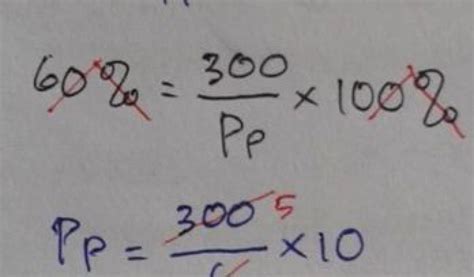 60% = 300/Pp × 100%
Pp = 300 5/ × 10